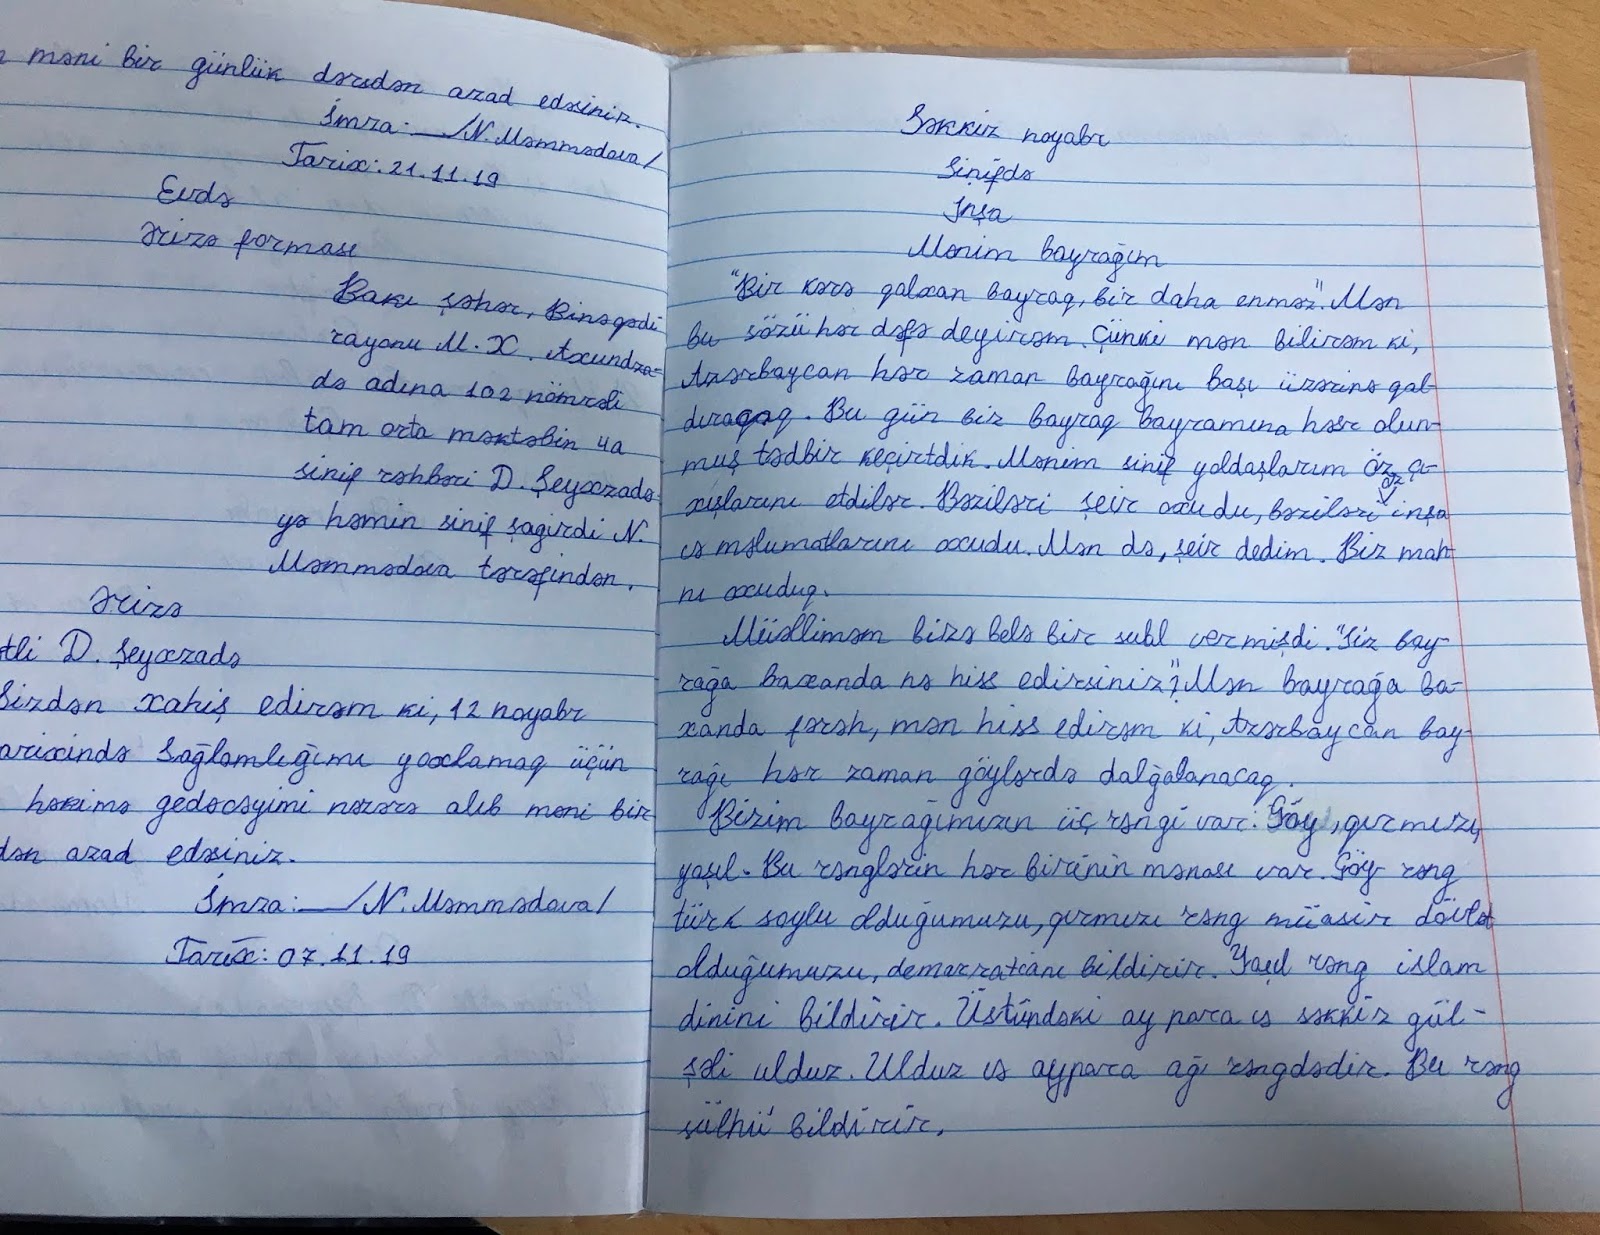 məni bir günlük dərsdən azad edəsiniz.
İmza: __/N.Məmmədova/
Tarix: 21.11.19
Evdə
Ərizə forması
Bakı şəhər, Binəqədi
rayonu M.X. Axundza-
də adına 102 nömrəli
tam orta məktəbin 4a
sinif rəhbəri D. Şeyxzadə-
yə həmin sinif şagirdi N.
Məmmədova tərəfindən.
Ərizə
tli D. Şeyxzadə
Sizdən xahiş edirəm ki, 12 noyabr
arixində sağlamlığımı yoxlamaq üçün
həkimə gedəcəyimi nəzərə alıb məni bir
dən azad edəsiniz.
İmza: __/N.Məmmədova/
Tarix: 07.11.19
Səkkiz noyabr
Sinifdə
İnşa
Mənim bayrağım
"Bir kərə qalxan bayraq, bir daha enməz". Mən
bu sözü hər dəfə deyirəm. Çünki mən bilirəm ki,
Azərbaycan hər zaman bayrağını başı üzərinə qal-
dıracaq. Bu gün biz bayraq bayramına həsr olun-
muş tədbir keçirtdik. Mənim sinif yoldaşlarım öz çı-
xışlarını etdilər. Bəziləri şeir oxudu, bəziləri öz inşa
və məlumatlarını oxudu. Mən də, şeir dedim. Biz mah-
nı oxuduq.
Müəlliməm bizə belə bir sual vermişdi. "Siz bay-
rağa baxanda nə hiss edirsiniz"? Mən bayrağa ba-
xanda fərəh, mən hiss edirəm ki, Azərbaycan bay-
rağı hər zaman göylərdə dalğalanacaq.
Bizim bayrağımızın üç rəngi var. Göy, qırmızı,
yaşıl. Bu rənglərin hər birinin mənası var. Göy rəng
türk soylu olduğumuzu, qırmızı rəng müasir dövlət
olduğumuzu, demokratianı bildirir. Yaşıl rəng islam
dinini bildirir. Üstündəki ay para və səkkiz gül-
şəli ulduz. Ulduz və aypara ağı rəngdədir. Bu rəng
sülhü bildirir.